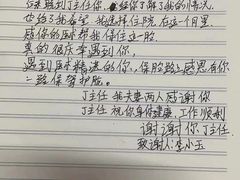 碰到丁主任你,给你了解了我的情况
也给了我希望 我选择住院在这一个月里
感你的 帮我保住这一胎
真的很庆幸遇到你
遇到医术精湛的你,保胎路上感恩有你
一路保驾护航。
丁主任 我夫妻两人感谢你
丁主任 祝你身体健康 工作顺利
谢谢你丁主任
致谢人:李小玉